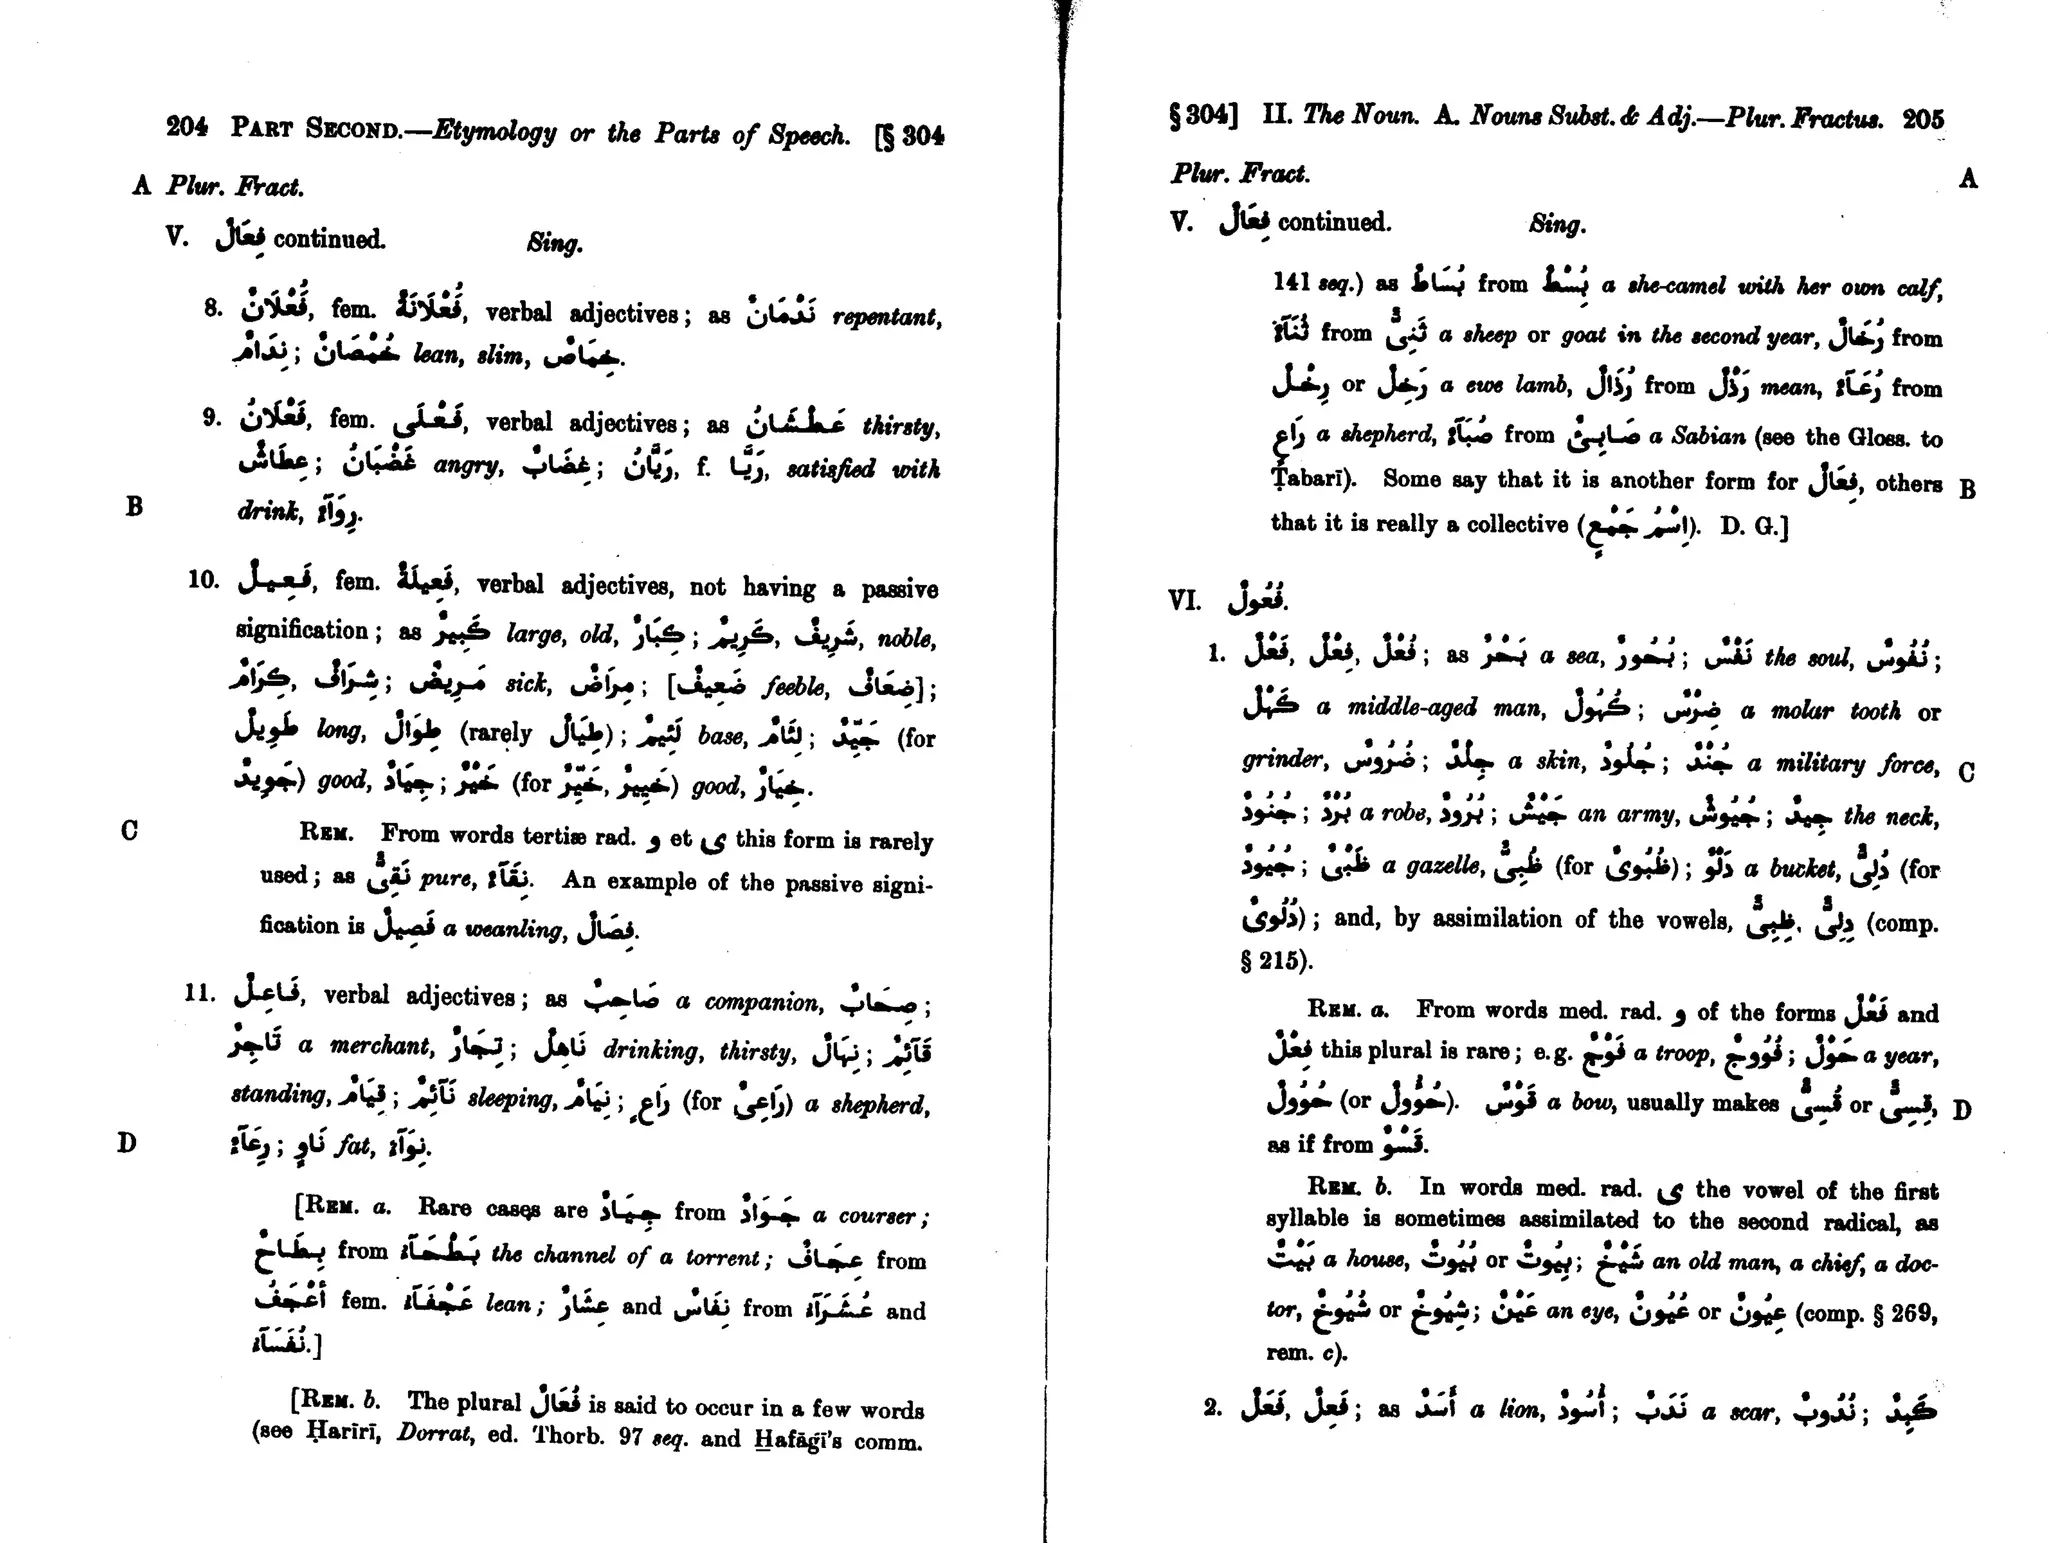 204 PART SECOND.—Etymology or the Parts of Speech. [§ 304
A Plur. Fract.
V. فِعَالٌ continued. Sing.
8. فُعْلَانٌ, fem. فُعْلَانَةٌ, verbal adjectives; as نَدْمَانٌ repentant,
نِدَامٌ; خُمْصَانٌ lean, slim, خِمَاصٌ.
9. فَعْلَانُ, fem. فَعْلَى, verbal adjectives; as عَطْشَانُ thirsty,
عِطَاشٌ; غَضْبَانُ angry, غِضَابٌ; رَيَّانُ, f. رَيَّا, satisfied with
B drink, رِوَآءٌ.
10. فَعِيلٌ, fem. فَعِيلَةٌ, verbal adjectives, not having a passive
signification; as كَبِيرٌ large, old, كِبَارٌ; كَرِيمٌ, شَرِيفٌ, noble,
كِرَامٌ, شِرَافٌ; مَرِيضٌ sick, مِرَاضٌ; [ضَعِيفٌ feeble, ضِعَافٌ];
طَوِيلٌ long, طِوَالٌ (rarely طِيَالٌ); لَئِيمٌ base, لِئَامٌ; جَيِّدٌ (for
جَوِيدٌ) good, جِيَادٌ; خَيْرٌ (for خَيِّرٌ, خَيِيرٌ) good, خِيَارٌ.
C REM. From words tertiæ rad. و et ى this form is rarely
used; as نَقِىٌّ pure, نِقَآءٌ. An example of the passive signi-
fication is فَصِيلٌ a weanling, فِصَالٌ.
11. فَاعِلٌ, verbal adjectives; as صَاحِبٌ a companion, صِحَابٌ;
تَاجِرٌ a merchant, تِجَارٌ; نَاهِلٌ drinking, thirsty, نِهَالٌ; قَآئِمٌ
standing, قِيَامٌ; نَآئِمٌ sleeping, نِيَامٌ; رَاعٍ (for رَاعِىٌ) a shepherd,
D رِعَآءٌ; نَاوٍ fat, نِوَآءٌ.
[REM. a. Rare cases are جِيَادٌ from جَوَادٌ a courser;
بِطَاحٌ from بَطْحَآءُ the channel of a torrent; عِجَافٌ from
أَعْجَفُ fem. عَجْفَآءُ lean; عِشَارٌ and نِفَاسٌ from عُشَرَآءُ and
نُفَسَآءُ.]
[REM. b. The plural فُعَالٌ is said to occur in a few words
(see Ḥarīrī, Dorrat, ed. Thorb. 97 seq. and Ḫafāǵī's comm.
§ 304] II. The Noun. A. Nouns Subst. & Adj.—Plur. Fractus. 205
Plur. Fract. A
V. فِعَالٌ continued. Sing.
141 seq.) as بُسَاطٌ from بِسْطٌ a she-camel with her own calf,
ثُنَآءٌ from ثَنِىٌّ a sheep or goat in the second year, رُخَالٌ from
رِخْلٌ or رَخِلٌ a ewe lamb, رُذَالٌ from رَذْلٌ mean, رُعَآءٌ from
رَاعٍ a shepherd, صُبَآءٌ from صَابِئٌ a Sabian (see the Gloss. to
Ṭabarī). Some say that it is another form for فِعَالٌ, others B
that it is really a collective (اِسْمُ جَمْعٍ). D. G.]
VI. فُعُولٌ.
1. فَعْلٌ, فِعْلٌ, فُعْلٌ; as بَحْرٌ a sea, بُحُورٌ; نَفْسٌ the soul, نُفُوسٌ;
كَهْلٌ a middle-aged man, كُهُولٌ; ضِرْسٌ a molar tooth or
grinder, ضُرُوسٌ; جِلْدٌ a skin, جُلُودٌ; جُنْدٌ a military force, C
جُنُودٌ; بُرْدٌ a robe, بُرُودٌ; جَيْشٌ an army, جُيُوشٌ; جِيدٌ the neck,
جُيُودٌ; ظَبْىٌ a gazelle, ظُبِىٌّ (for ظُبُوىٌ); دَلْوٌ a bucket, دُلِىٌّ (for
دُلُوىٌ); and, by assimilation of the vowels, ظِبِىٌّ, دِلِىٌّ (comp.
§ 215).
REM. a. From words med. rad. و of the forms فَعْلٌ and
فُعْلٌ this plural is rare; e.g. فَوْجٌ a troop, فُوُوجٌ; حَوْلٌ a year,
حُوُولٌ (or حُؤُولٌ). قَوْسٌ a bow, usually makes قُسِىٌّ or قِسِىٌّ, D
as if from قَسْوٌ.
REM. b. In words med. rad. ى the vowel of the first
syllable is sometimes assimilated to the second radical, as
بَيْتٌ a house, بُيُوتٌ or بِيُوتٌ; شَيْخٌ an old man, a chief, a doc-
tor, شُيُوخٌ or شِيُوخٌ; عَيْنٌ an eye, عُيُونٌ or عِيُونٌ (comp. § 269,
rem. c).
2. فَعَلٌ, فَعِلٌ; as أَسَدٌ a lion, أُسُودٌ; نَدَبٌ a scar, نُدُوبٌ; كَبِدٌ